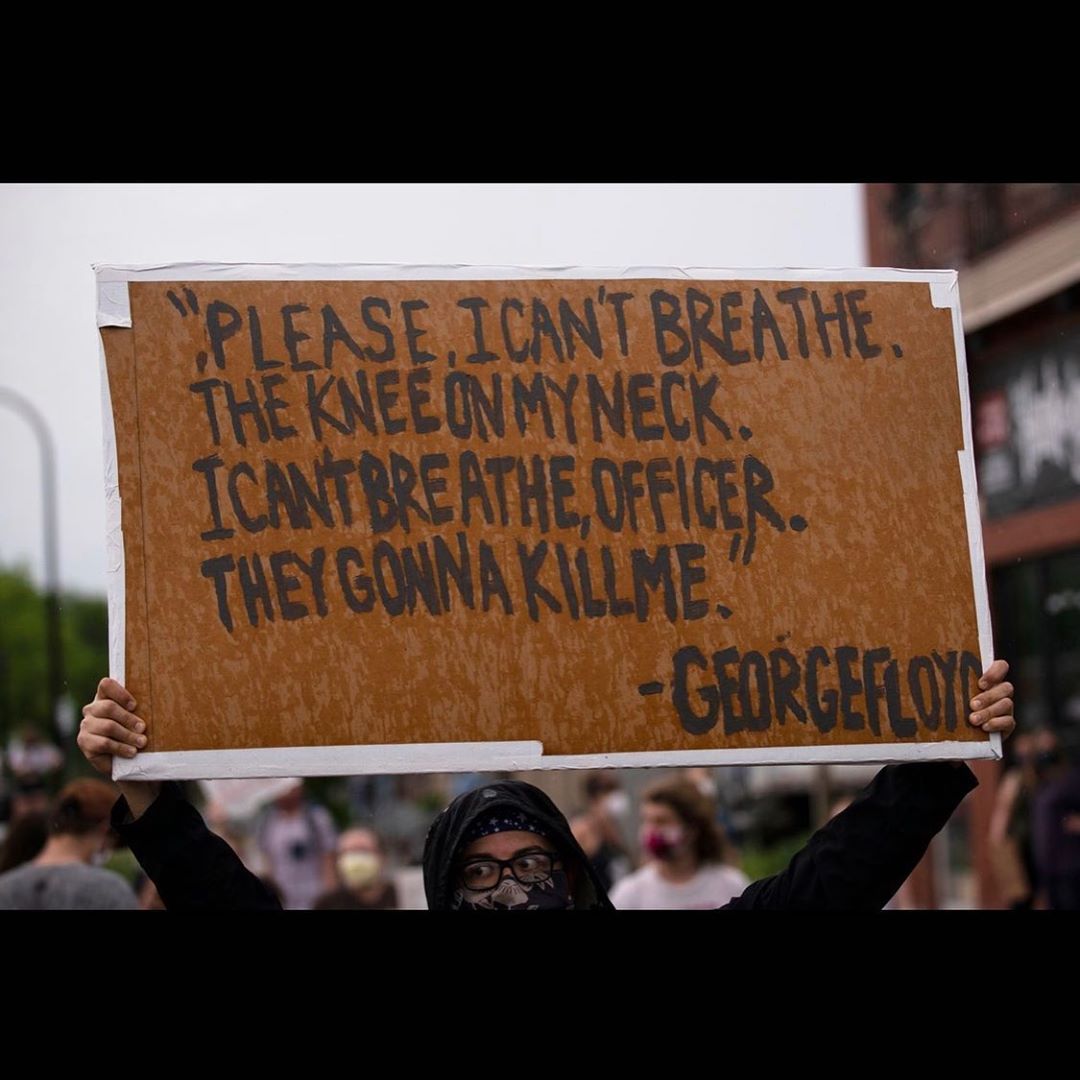 "PLEASE, I CAN'T BREATHE.
THE KNEE ON MY NECK.
I CAN'T BREATHE, OFFICER.
THEY GONNA KILL ME."
-GEORGE FLOYD